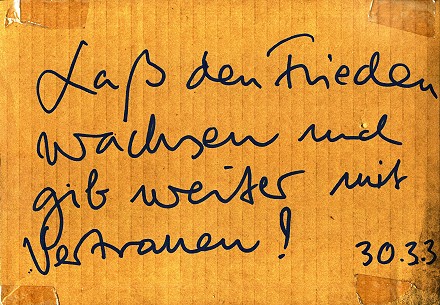 Laß den Frieden
wachsen und
gib weiter mit
Vertrauen!
30.3.3